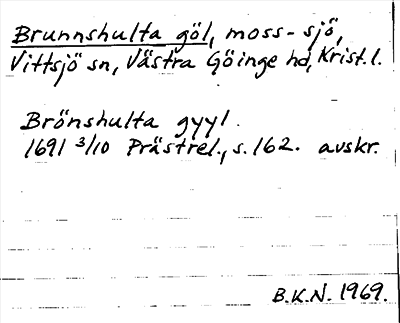 Brunnshulta göl, moss-sjö,
Vittsjö sn, Västra Göinge hd, Krist. l.
Brönshulta gyyl.
1691 3/10 Prästrel., s. 162. avskr.
B.K.N. 1969.